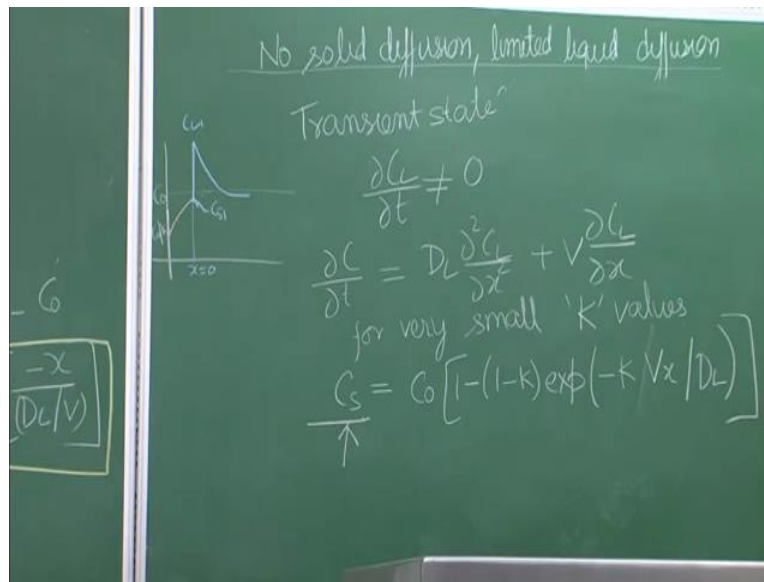 No solid diffusion, limited liquid diffusion
Transient state
∂C_L/∂t ≠ 0
∂C/∂t = D_L ∂²C_L/∂x² + V ∂C_L/∂x
for very small 'K' values
C_s = C_0 [1-(1-K) exp(-K Vx/D_L)]
C_0
x=0
- C_0
-x
(D_L/V)